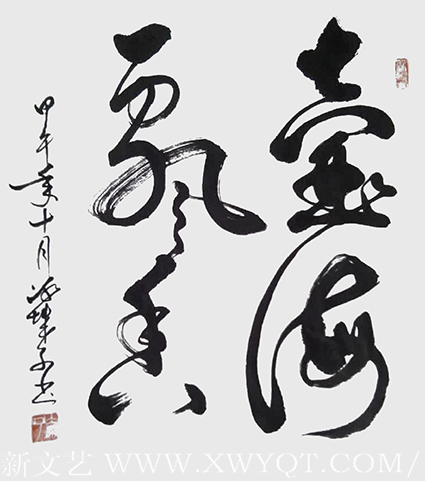 壺海
飄香
甲午年十月
新文艺 WWW.XWYQT.COM/